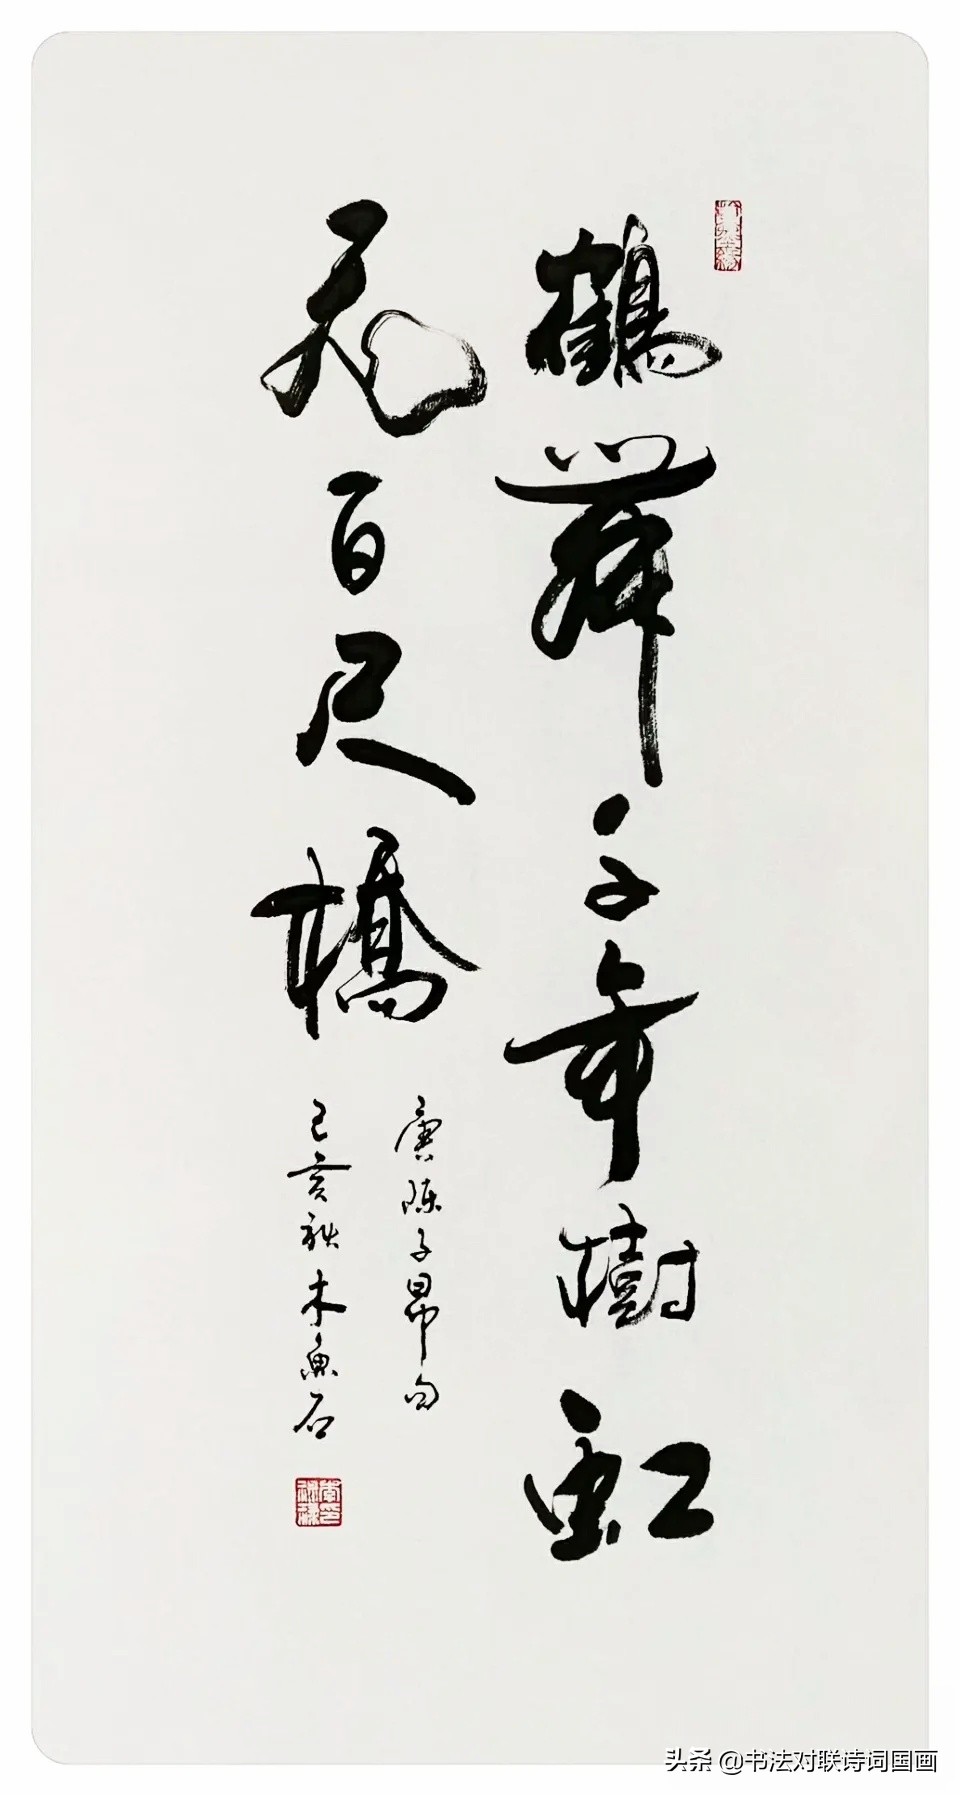 鶴舞千年樹虹
飛百尺橋
唐陳子昂句
己亥秋木魚石
头条 @书法对联诗词国画